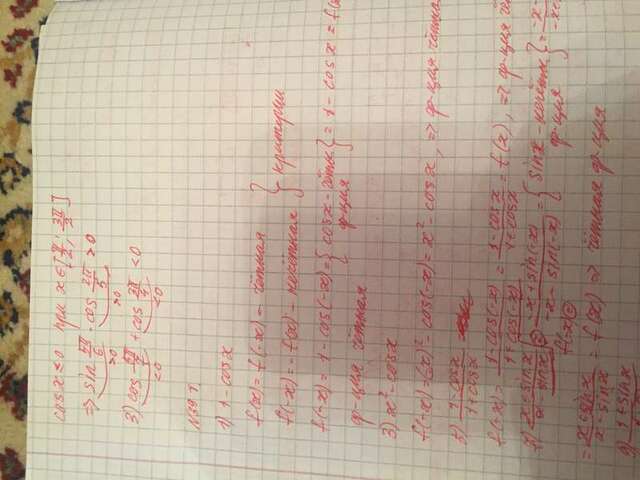 cos x ≤ 0 при x ∈ [π/2; 3π/2]
⇒ sin 5π/6 · cos 2π/5 > 0
>0 >0
3) cos 5π/7 + cos 3π/4 < 0
<0 <0
1) 1 - cos x
f(x) = f(-x) - чётная
f(-x) = -f(x) - нечётная } критерии
f(-x) = 1 - cos(-x) = {cos x - чётн ф-ция} = 1 - cos x = f(x
ф-ция чётная
3) x² - cos x
f(-x) = (-x)² - cos(-x) = x² - cos x, ⇒ ф-ция чётная
5) 1-cos x / 1+cos x
f(-x) = 1-cos(-x) / 1+cos(-x) = 1-cos x / 1+cos x = f(x), ⇒ ф-ция чёт
x+sin x / x-sin x = -x+sin(-x) / -x-sin(-x) = {sin x - нечётн ф-ция} = -x- / -x+
f(-x) =
= x+sin x / x-sin x = f(x) ⇒ чётная ф-ция
9) 1+sin x